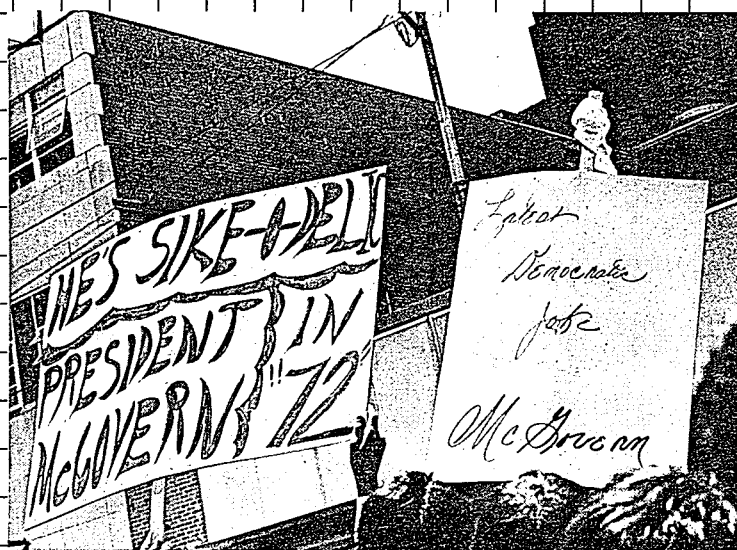 HE'S SIKE-A-DELIC
PRESIDENT IN
McGOVERN "72"
Latest
Democratic
Joke
McGovern